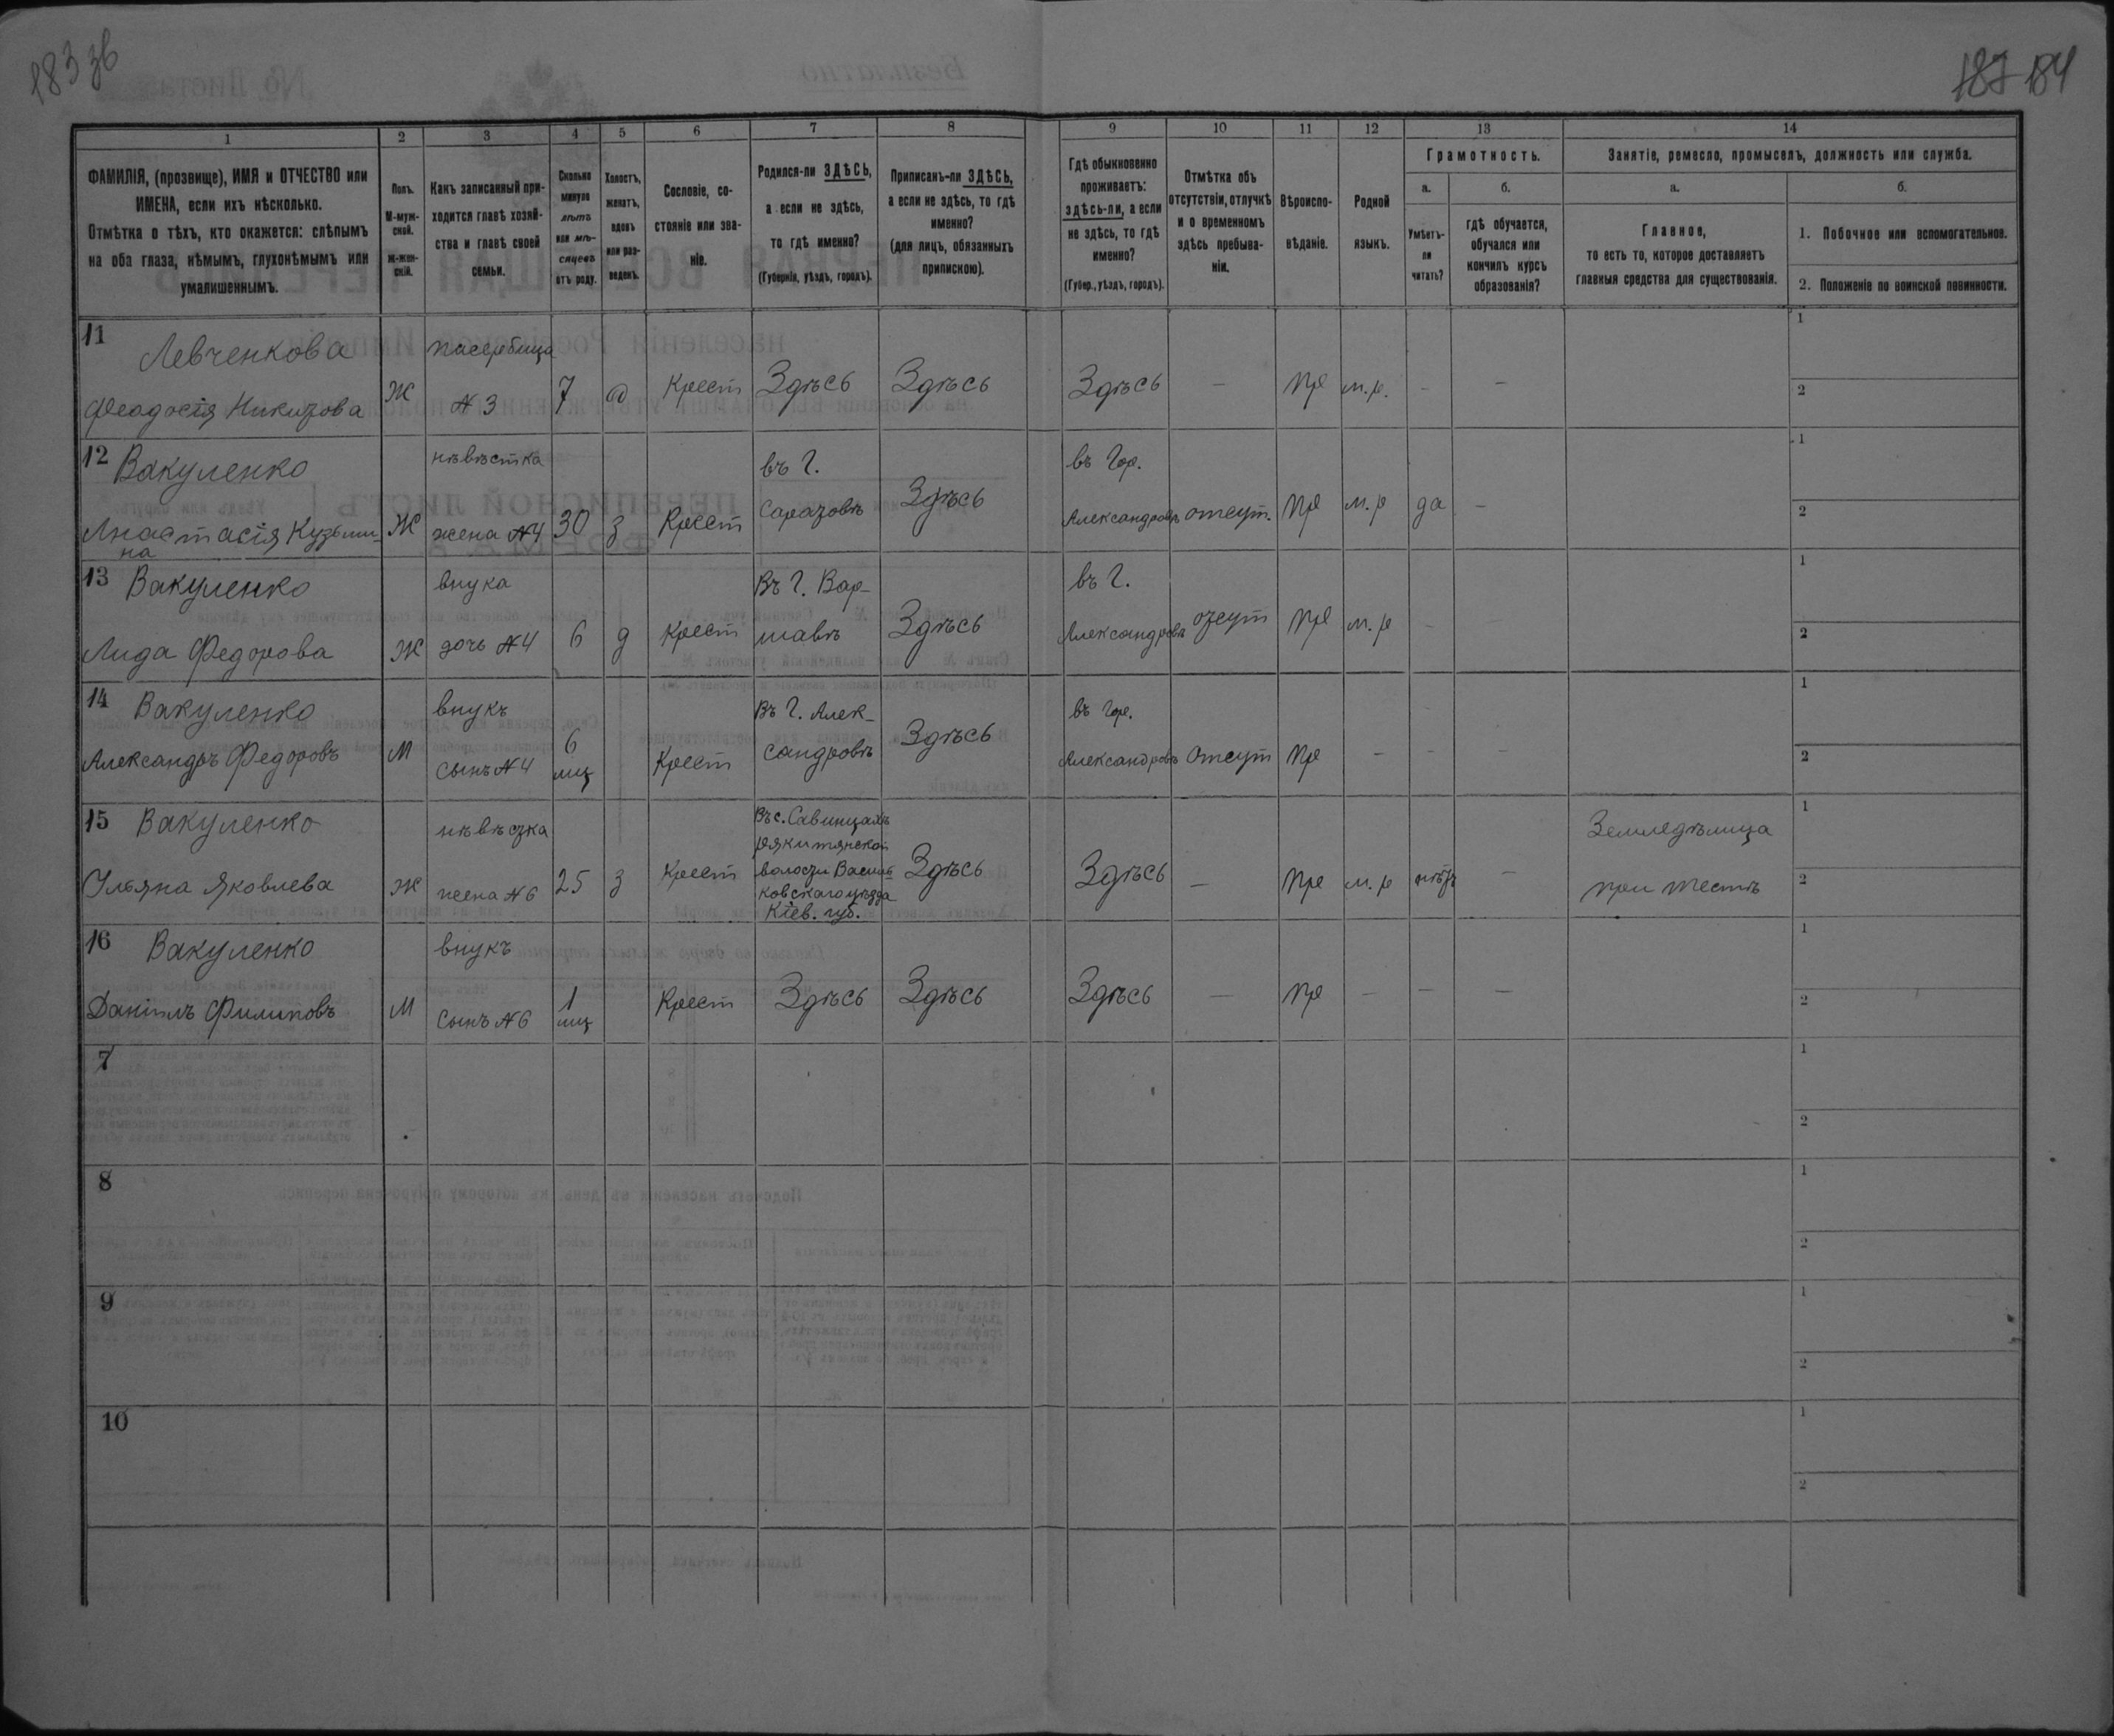 183 зв
187 184
1 2 3 4 5 6 7 8 9 10 11 12 13 14
ФАМИЛІЯ, (прозвище), ИМЯ и ОТЧЕСТВО или
ИМЕНА, если ихъ нѣсколько.
Отмѣтка о тѣхъ, кто окажется: слѣпымъ
на оба глаза, нѣмымъ, глухонѣмымъ или
умалишеннымъ.
Полъ.
М-муж-
ской.
Ж-жен-
скій.
Какъ записанный при-
ходится главѣ хозяй-
ства и главѣ своей
семьи.
Сколько
минуло
лѣтъ
или мѣ-
сяцевъ
отъ роду.
Холостъ,
женатъ,
вдовъ
или раз-
веденъ.
Сословіе, со-
стояніе или зва-
ніе.
Родился-ли ЗДѢСЬ,
а если не здѣсь,
то гдѣ именно?
(Губернія, уѣздъ, городъ).
Приписанъ-ли ЗДѢСЬ,
а если не здѣсь, то гдѣ
именно?
(для лицъ, обязанныхъ
припискою).
Гдѣ обыкновенно
проживаетъ:
здѣсь-ли, а если
не здѣсь, то гдѣ
именно?
(Губер., уѣздъ, городъ).
Отмѣтка объ
отсутствіи, отлучкѣ
и о временномъ
здѣсь пребыва-
ніи.
Вѣроиспо-
вѣданіе.
Родной
языкъ.
Грамотность.
а.
Умѣетъ-
ли
читать?
б.
гдѣ обучается,
обучался или
кончилъ курсъ
образованія?
Занятіе, ремесло, промыселъ, должность или служба.
а.
Главное,
то есть то, которое доставляетъ
главныя средства для существованія.
б.
1. Побочное или вспомогательное.
2. Положеніе по воинской повинности.
11 Левченкова падчерица 1
Феодосія Никитова Ж № 3 7 д Крест Здѣсь Здѣсь Здѣсь — пр м.р. — — 2
12 Вакуленко невѣстка въ г. въ гор. 1
Анастасія Кузьми- Ж жена №4 30 з Крест Саратовѣ Здѣсь Александровѣ отсут. пр м.р да — 2
на
13 Вакуленко внука Въ г. Вар- въ г. 1
Лида Федорова Ж дочь №4 6 д Крест шавѣ Здѣсь Александровѣ отсут пр м.р — — 2
14 Вакуленко внукъ Въ г. Алек- въ гор. 1
Александръ Федоровъ М сынъ №4 6 мц Крест сандровѣ Здѣсь Александровѣ отсут пр — — — 2
15 Вакуленко невѣстка Въ с. Савинцахъ Земледѣлица 1
волости Василь-
Ульяна Яковлева Ж жена №6 25 з Крест ковскаго уѣзда Здѣсь Здѣсь — пр м.р нѣтъ — при тестѣ 2
Кіев. губ.
16 Вакуленко внукъ 1
Даніилъ Филиповъ М сынъ №6 1 мц Крест Здѣсь Здѣсь Здѣсь — пр — — — 2
7 1
2
8 1
2
9 1
2
10 1
2